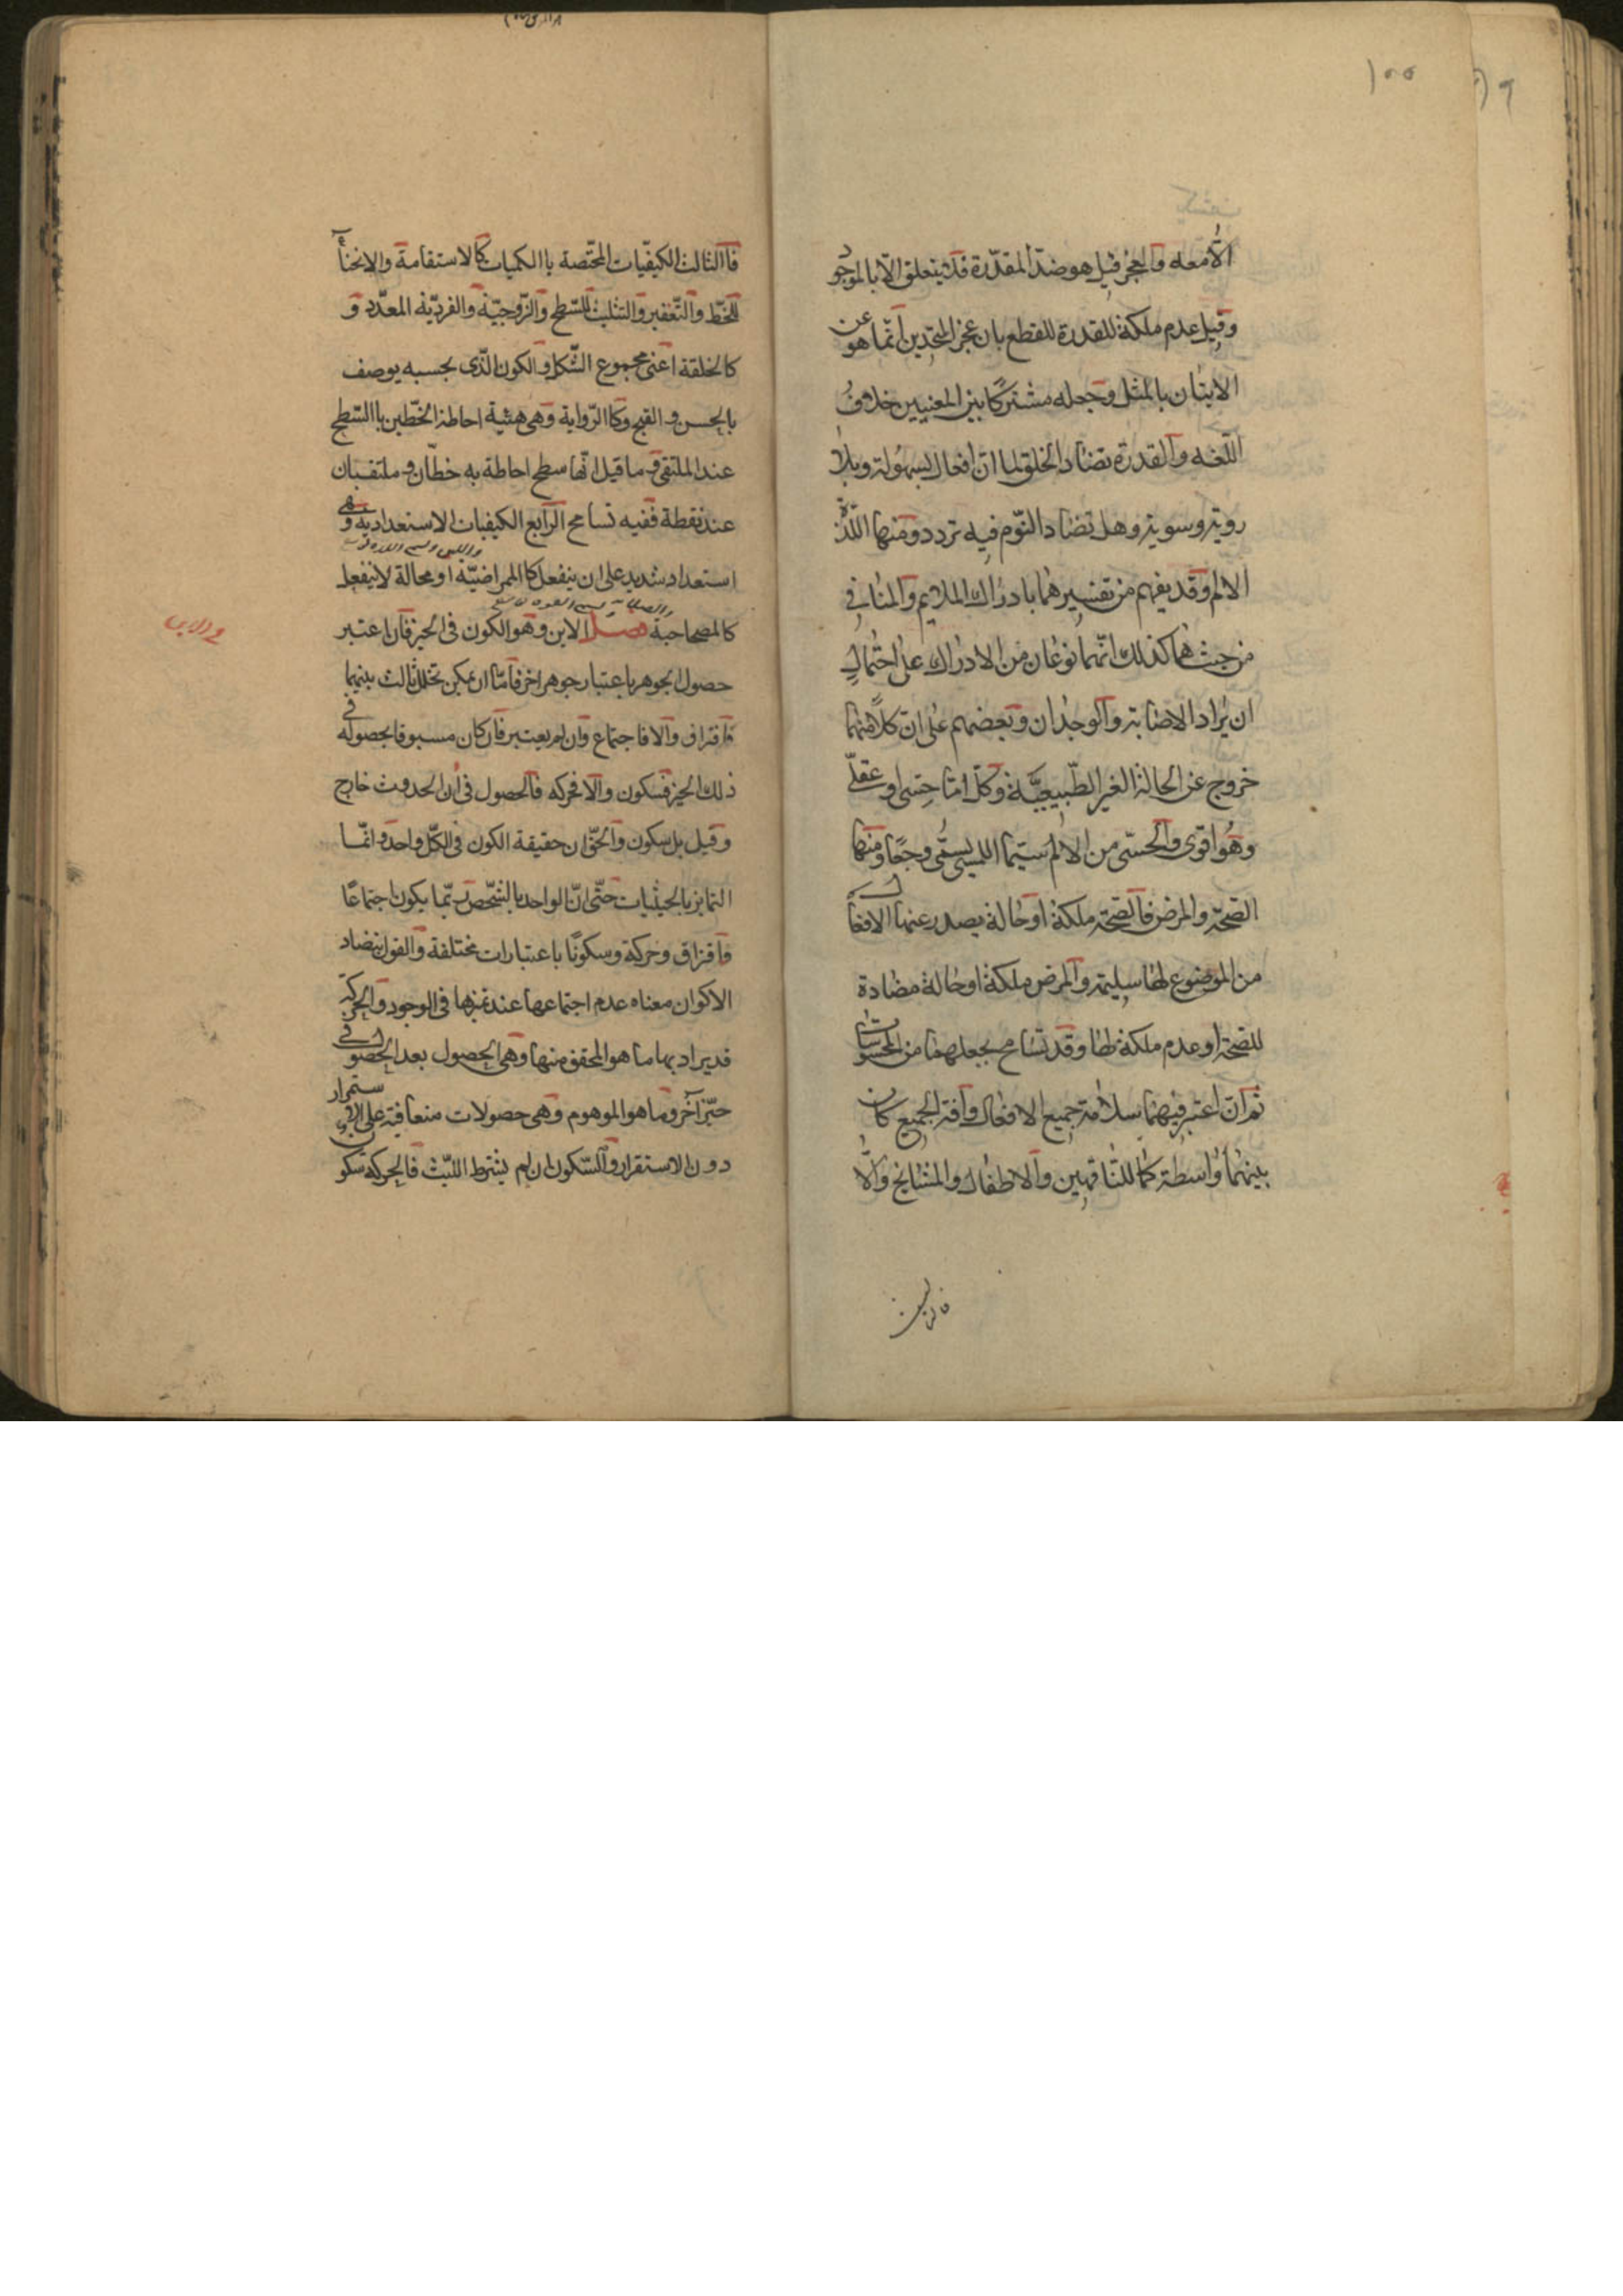 ١٥٥
٩٦
الا معه والعجز قيل هو ضد المقدرة فلا يتعلق الا بالموجود
وقيل عدم ملكة للقدرة للقطع بان عجز المتحدين انما هو عن
الاتيان بالمثل وجعله مشتركا بين المعنيين خلاف
اللغه والقدرة تضاد الخلق لما ان افعاله بسهولة وبلا
روية وسوية وهل تضاد النوم فيه تردد ومنها اللذة
الالم وقد يفهم من تفسيرهما بادراك الملايم والمنافي
من حيث هما كذلك انهما نوعان من الادراك على احتمال
ان يراد الاصابة والوجدان وبعضهم على ان كلا منهما
خروج عن الحالة الغير الطبيعيّة وكل اما حسى او عقلى
وهو اقوى والحسى من الالم سيما اللمسى يسمى وجعا ومنها
الصحة والمرض فالصحة ملكة او حالة يصدر عنها الافعال
من الموضوع لها سليمة والمرض ملكة او حالة مضادة
للصحة او عدم ملكة لها وقد تسامح بجعلهما من المحسوسات
ثم ان اعتبر فيهما سلامة جميع الافعال وآفة الجميع كان
بينهما واسطة كما للناقهين والاطفال والمشايخ والا
فاالثالث الكيفيّات المختصة باالكميات كالاستقامة والانحناء
للخط والتقعير والتثليث للسّطح والزّوجيّة والفرديّة المعدّد و
كالخلقة اعنى مجموع الشّكل والكون الّذى بحسبه يوصف
بالحسن والقبح وكاالزّواية وهى هئية احاطة الخطّين باالسّطح
عند الملتقى وما قيل انها سطح احاطة به خطّان ملتقيان
عند نقطة ففيه تسامح الرّابع الكيفيات الاستعدادية وهى
استعداد شديد على ان ينفعل كاالممراضيّة او محالة لاينفعل
كالمصحاحية فصل الاين وهو الكون فى الحيز فان اعتبر
حصول الجوهر باعتبار جوهر اخر فامّا ان يمكن تخلل ثالث بينهما
فافتراق والا فاجتماع وان لم يعتبر فان كان مسبوقا بحصوله فى
ذلك الحيز فسكون والا فحركه فالحصول فى آن الحدوث خارج
وقيل بل سكون والحقّ ان حقيقة الكون فى الكلّ واحد وانمّا
التمايز بالحيثيات حتّى انّ الواحد بالشّخص ربّما يكون اجتماعًا
فافتراق وحركة وسكونًا باعتبارات مختلفة والقول بتضاد
الاكوان معناه عدم اجتماعها عند تميزها فى الوجود والحركة
قد يراد بها ما هو المحقق منها وهى الحصول بعد الحصول فى
حيّز آخر وما هو الموهوم وهى حصولات متعاقبة على الاستمرار
دون الاستقرار والسّكون ان لم يشترط اللبث فالحركة سكون